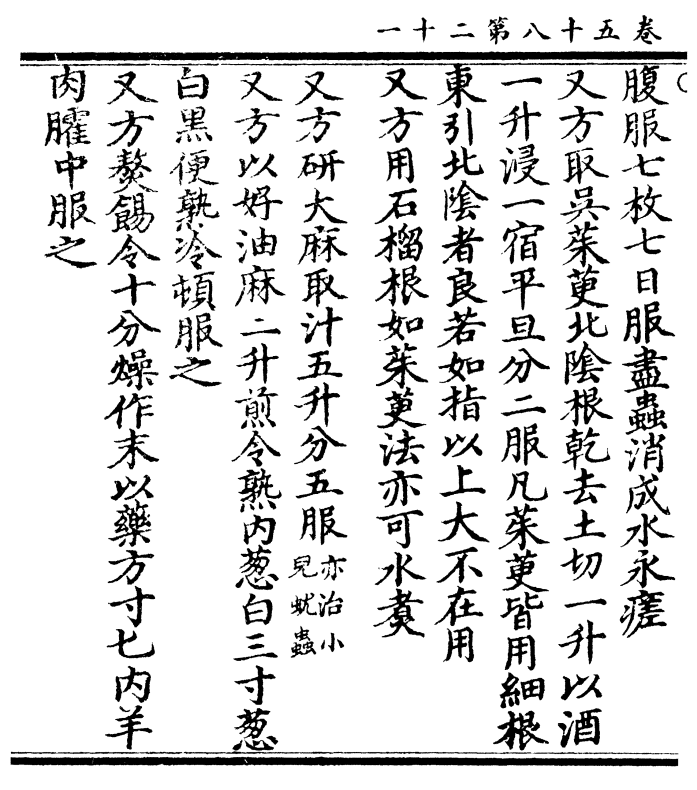 卷五十八第二十一
腹服七枚七日服盡蟲消成水永瘥
又方取吳茱萸北陰根乾去土切一升以酒
一升浸一宿平旦分二服凡茱萸皆用細根
東引北陰者良若如指以上大不在用
又方用石榴根如茱萸法亦可水煑
又方研大麻取汁五升分五服亦治小兒蚘蟲
又方以好油麻二升煎令熟内葱白三寸葱
白黒便熟冷頓服之
又方熬餳令十分燥作末以藥方寸匕内羊
肉臛中服之